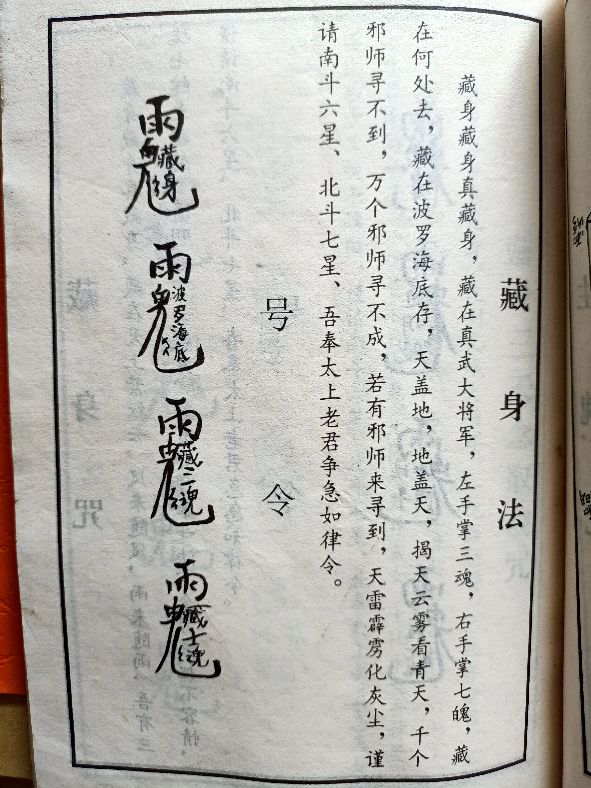 藏身法
藏身藏身真藏身，藏在真武大将军，左手掌三魂，右手掌七魄，藏
在何处去，藏在波罗海底存，天盖地，地盖天，揭天云雾看青天，千个
邪师寻不到，万个邪师寻不成，若有邪师来寻到，天雷霹雳化灰尘，谨
请南斗六星、北斗七星、吾奉太上老君争急如律令。
号令
雨 藏身
雨 鬼 波罗海底
雨 藏三魂
雨 藏七魄